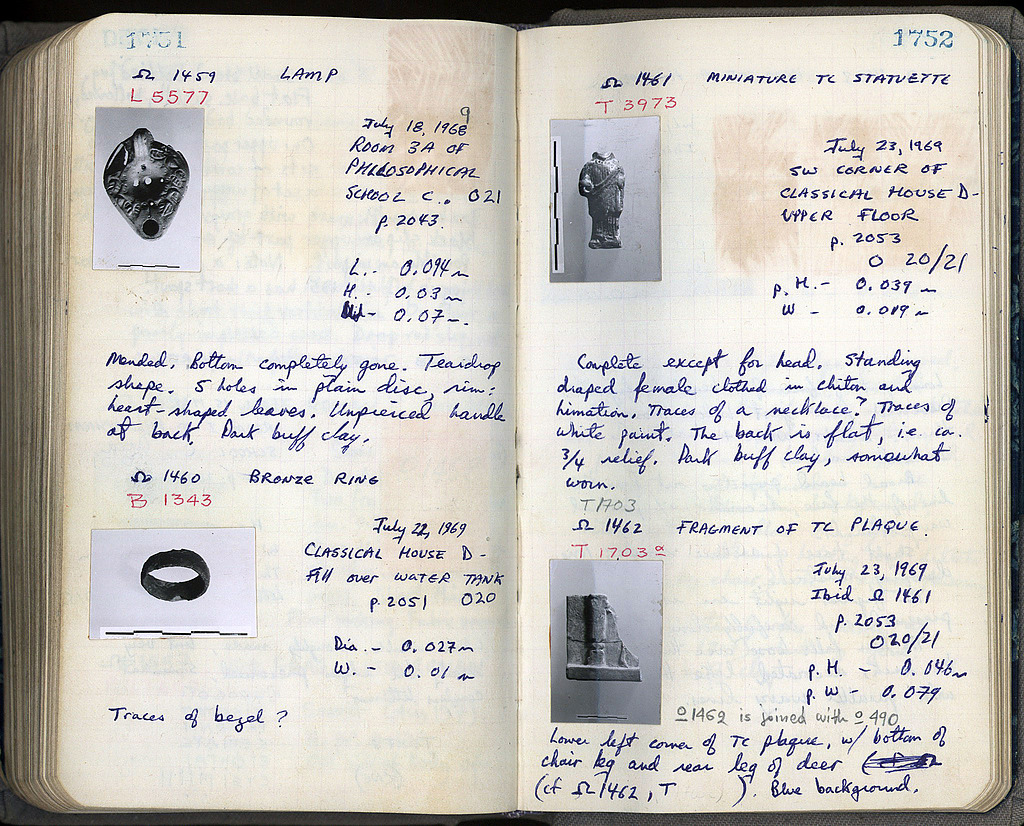 1751
Ω 1459 LAMP
L 5577
9
July 18, 1968
ROOM 3A OF
PHILOSOPHICAL
SCHOOL C. 021
p. 2043.
L.- 0.094 m
H.- 0.03 m
- 0.07 m.
Mended. Bottom completely gone. Teardrop
shape. 5 holes in plain disc, rim:
heart-shaped leaves. Unpierced handle
at back. Dark buff clay.
Ω 1460 BRONZE RING
B 1343
July 22, 1969
CLASSICAL HOUSE D-
Fill over WATER TANK
p. 2051 020
Dia. - 0.027m
W. - 0.01 m
Traces of bezel?
1752
Ω 1461 MINIATURE TC STATUETTE
T 3973
July 23, 1969
SW CORNER OF
CLASSICAL HOUSE D-
UPPER FLOOR
p. 2053
O 20/21
p. H.- 0.039 m
W - 0.019 m
Complete except for head. Standing
draped female clothed in chiton and
himation. Traces of a necklace? Traces of
white paint. The back is flat, i.e. ca.
3/4 relief. Dark buff clay, somewhat
worn.
T1703
Ω 1462 FRAGMENT OF TC PLAQUE.
T 1703 a
July 23, 1969
Ibid Ω 1461
p. 2053
O20/21
p. H. - 0.046m
p. W - 0.079
Ω1462 is joined with Ω 490
Lower left corner of TC plaque, w/ bottom of
chair leg and rear leg of deer
(cf Ω 1462, T ). Blue background.